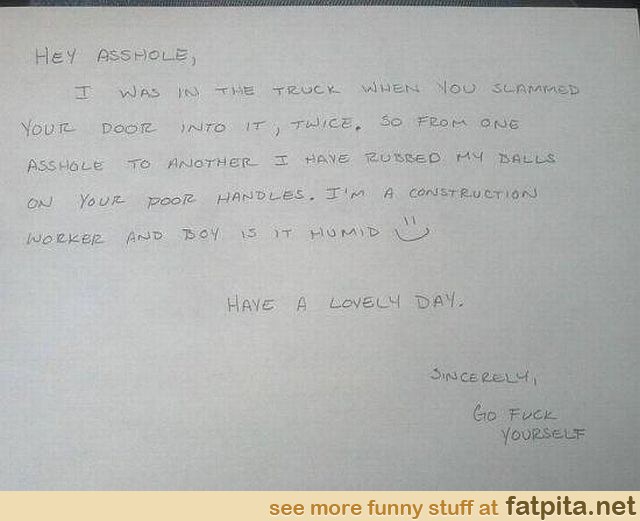 HEY ASSHOLE,
I WAS IN THE TRUCK WHEN YOU SLAMMED
YOUR DOOR INTO IT, TWICE. SO FROM ONE
ASSHOLE TO ANOTHER I HAVE RUBBED MY BALLS
ON YOUR DOOR HANDLES. I'M A CONSTRUCTION
WORKER AND BOY IS IT HUMID
HAVE A LOVELY DAY.
SINCERELY,
GO FUCK
YOURSELF
see more funny stuff at fatpita.net